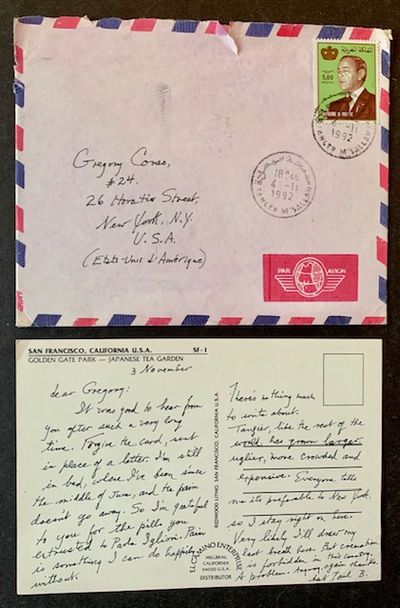 المملكة المغربية
5,00
ROYAUME DU MAROC
TANGER M'SALLAH
1992
18H45
4 -11
1992
TANGER M'SALLAH
Gregory Corso,
#24.
26 Horatio Street,
New York, N.Y.
U.S.A.
(Etats-Unis d'Amérique)
PAR AVION
SAN FRANCISCO, CALIFORNIA U.S.A. SF-1
GOLDEN GATE PARK — JAPANESE TEA GARDEN
3 November
dear Gregory:
It was good to hear from
you after such a very long
time. Forgive the card, sent
in place of a letter. I'm still
in bed, where I've been since
the middle of June, and the pain
doesn't go away. So I'm grateful
to you for the pills you
entrusted to Paola Igliori. Pain
is something I can do happily
without.
REDWOOD LITHO, SAN FRANCISCO, CALIFORNIA U.S.A.
EL CAMINO ENTERPRISE
MILLBRAE,
CALIFORNIA
94030 U.S.A.
DISTRIBUTOR
There's nothing much
to write about.
Tangier, like the rest of the
world, has grown larger,
uglier, more crowded and
expensive. Everyone tells
me its preferable to New York.
so I stay right on here.
Very likely I'll draw my
last breath here. But cremation
is forbidden in this country.
A problem. Anyway, again thanks,
Paul B.